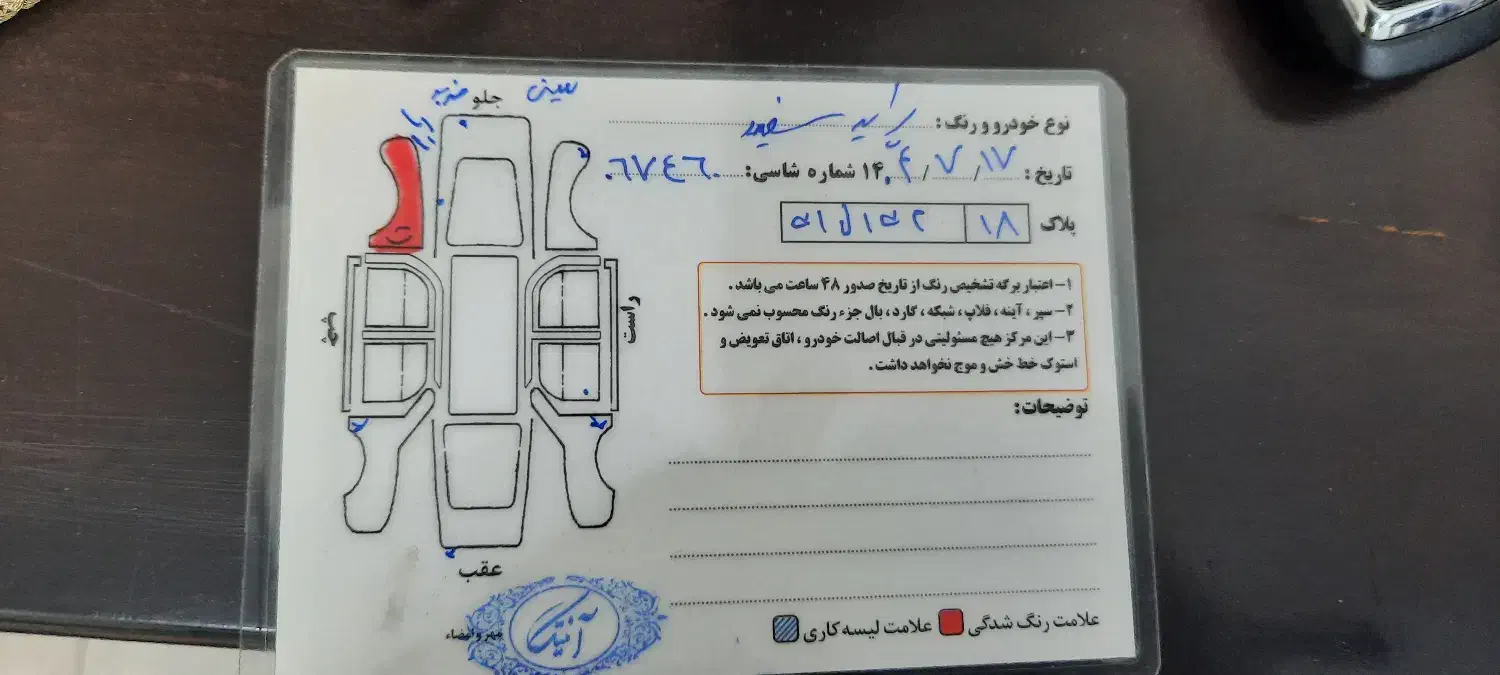 جلو
ضربه
سینی
نوع خودرو و رنگ : پراید سفید
تاریخ : ۱۷ / ۷ / ۱۴۰۴ شماره شاسی: ۰۶۷۴۶۰
پلاک ۱۸
راست
چپ
۱- اعتبار برگه تشخیص رنگ از تاریخ صدور ۴۸ ساعت می باشد .
۲- سپر ، آینه ، فلاپ ، شبکه ، گارد ، بال جزء رنگ محسوب نمی شود .
۳- این مرکز هیچ مسئولیتی در قبال اصالت خودرو ، اتاق تعویض و
استوک خط خش و موج نخواهد داشت .
توضیحات:
عقب
علامت رنگ شدگی
علامت لیسه کاری
مهر و امضاء
آنتیک